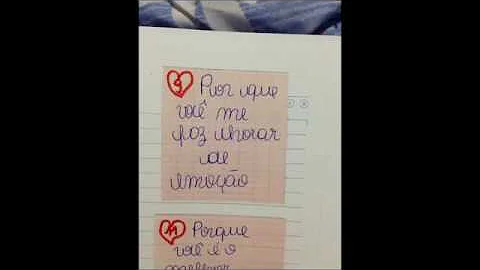 9 Por que
você me
faz chorar
de
emoção
11 Porque
você é o